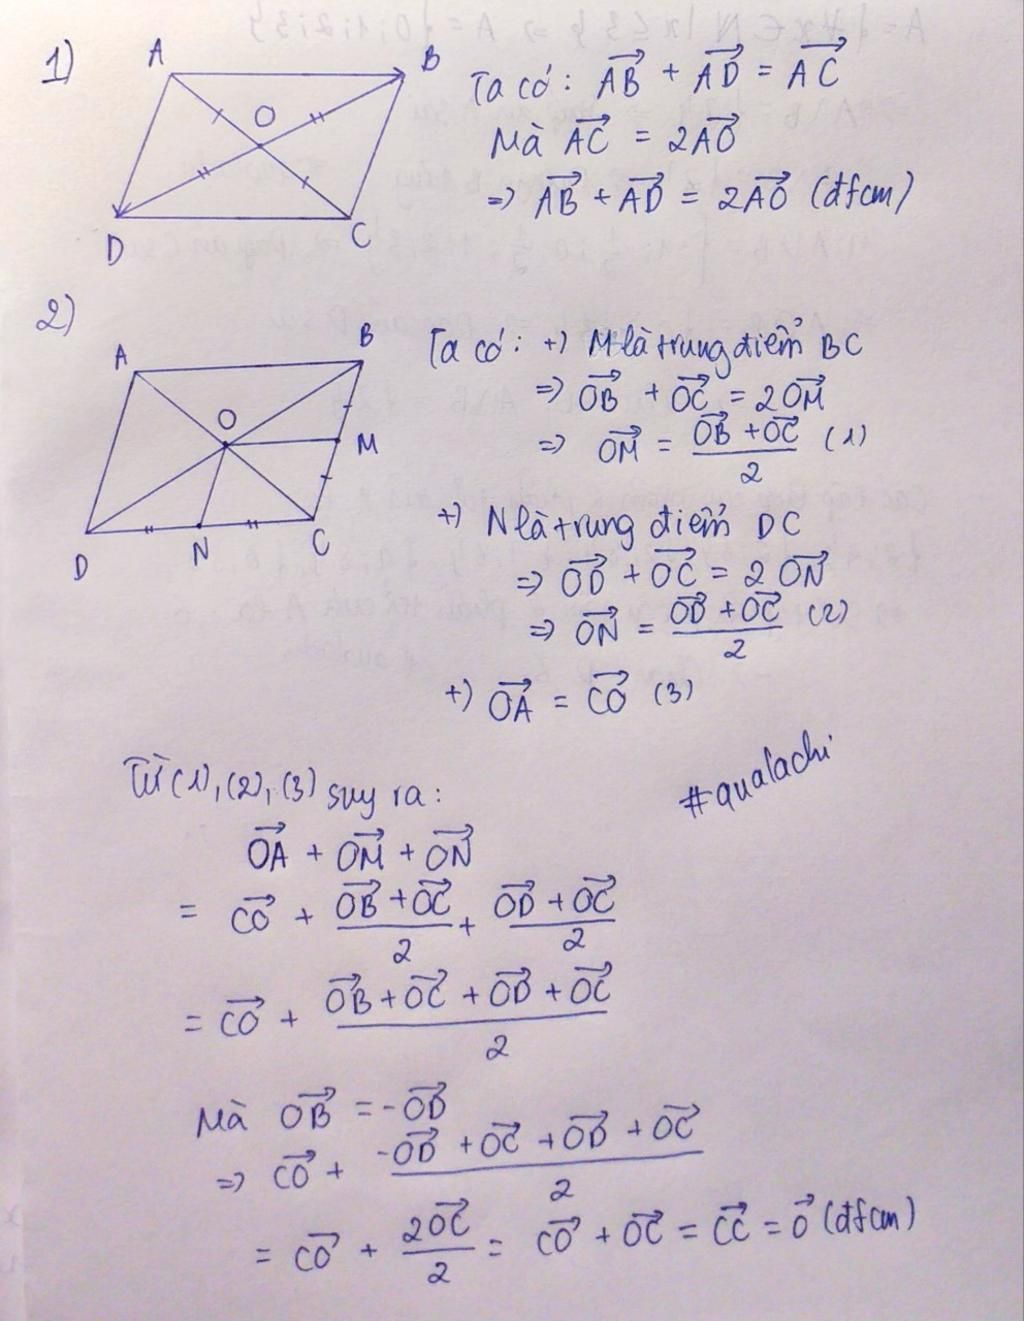 1)
A
B
O
D
C
Ta có: $\overrightarrow{AB} + \overrightarrow{AD} = \overrightarrow{AC}$
Mà $\overrightarrow{AC} = 2\overrightarrow{AO}$
=> $\overrightarrow{AB} + \overrightarrow{AD} = 2\overrightarrow{AO}$ (đfcm)
2)
A
B
O
M
D
N
C
Ta có: +) M là trung điểm BC
=> $\overrightarrow{OB} + \overrightarrow{OC} = 2\overrightarrow{OM}$
=> $\overrightarrow{OM} = \frac{\overrightarrow{OB} + \overrightarrow{OC}}{2}$ (1)
+) N là trung điểm DC
=> $\overrightarrow{OD} + \overrightarrow{OC} = 2\overrightarrow{ON}$
=> $\overrightarrow{ON} = \frac{\overrightarrow{OD} + \overrightarrow{OC}}{2}$ (2)
+) $\overrightarrow{OA} = \overrightarrow{CO}$ (3)
#qualachi
Từ (1), (2), (3) suy ra:
$\overrightarrow{OA} + \overrightarrow{OM} + \overrightarrow{ON}$
= $\overrightarrow{CO} + \frac{\overrightarrow{OB} + \overrightarrow{OC}}{2} + \frac{\overrightarrow{OD} + \overrightarrow{OC}}{2}$
= $\overrightarrow{CO} + \frac{\overrightarrow{OB} + \overrightarrow{OC} + \overrightarrow{OD} + \overrightarrow{OC}}{2}$
Mà $\overrightarrow{OB} = -\overrightarrow{OD}$
=> $\overrightarrow{CO} + \frac{-\overrightarrow{OD} + \overrightarrow{OC} + \overrightarrow{OD} + \overrightarrow{OC}}{2}$
= $\overrightarrow{CO} + \frac{2\overrightarrow{OC}}{2} = \overrightarrow{CO} + \overrightarrow{OC} = \overrightarrow{CC} = \vec{0}$ (đfcm)